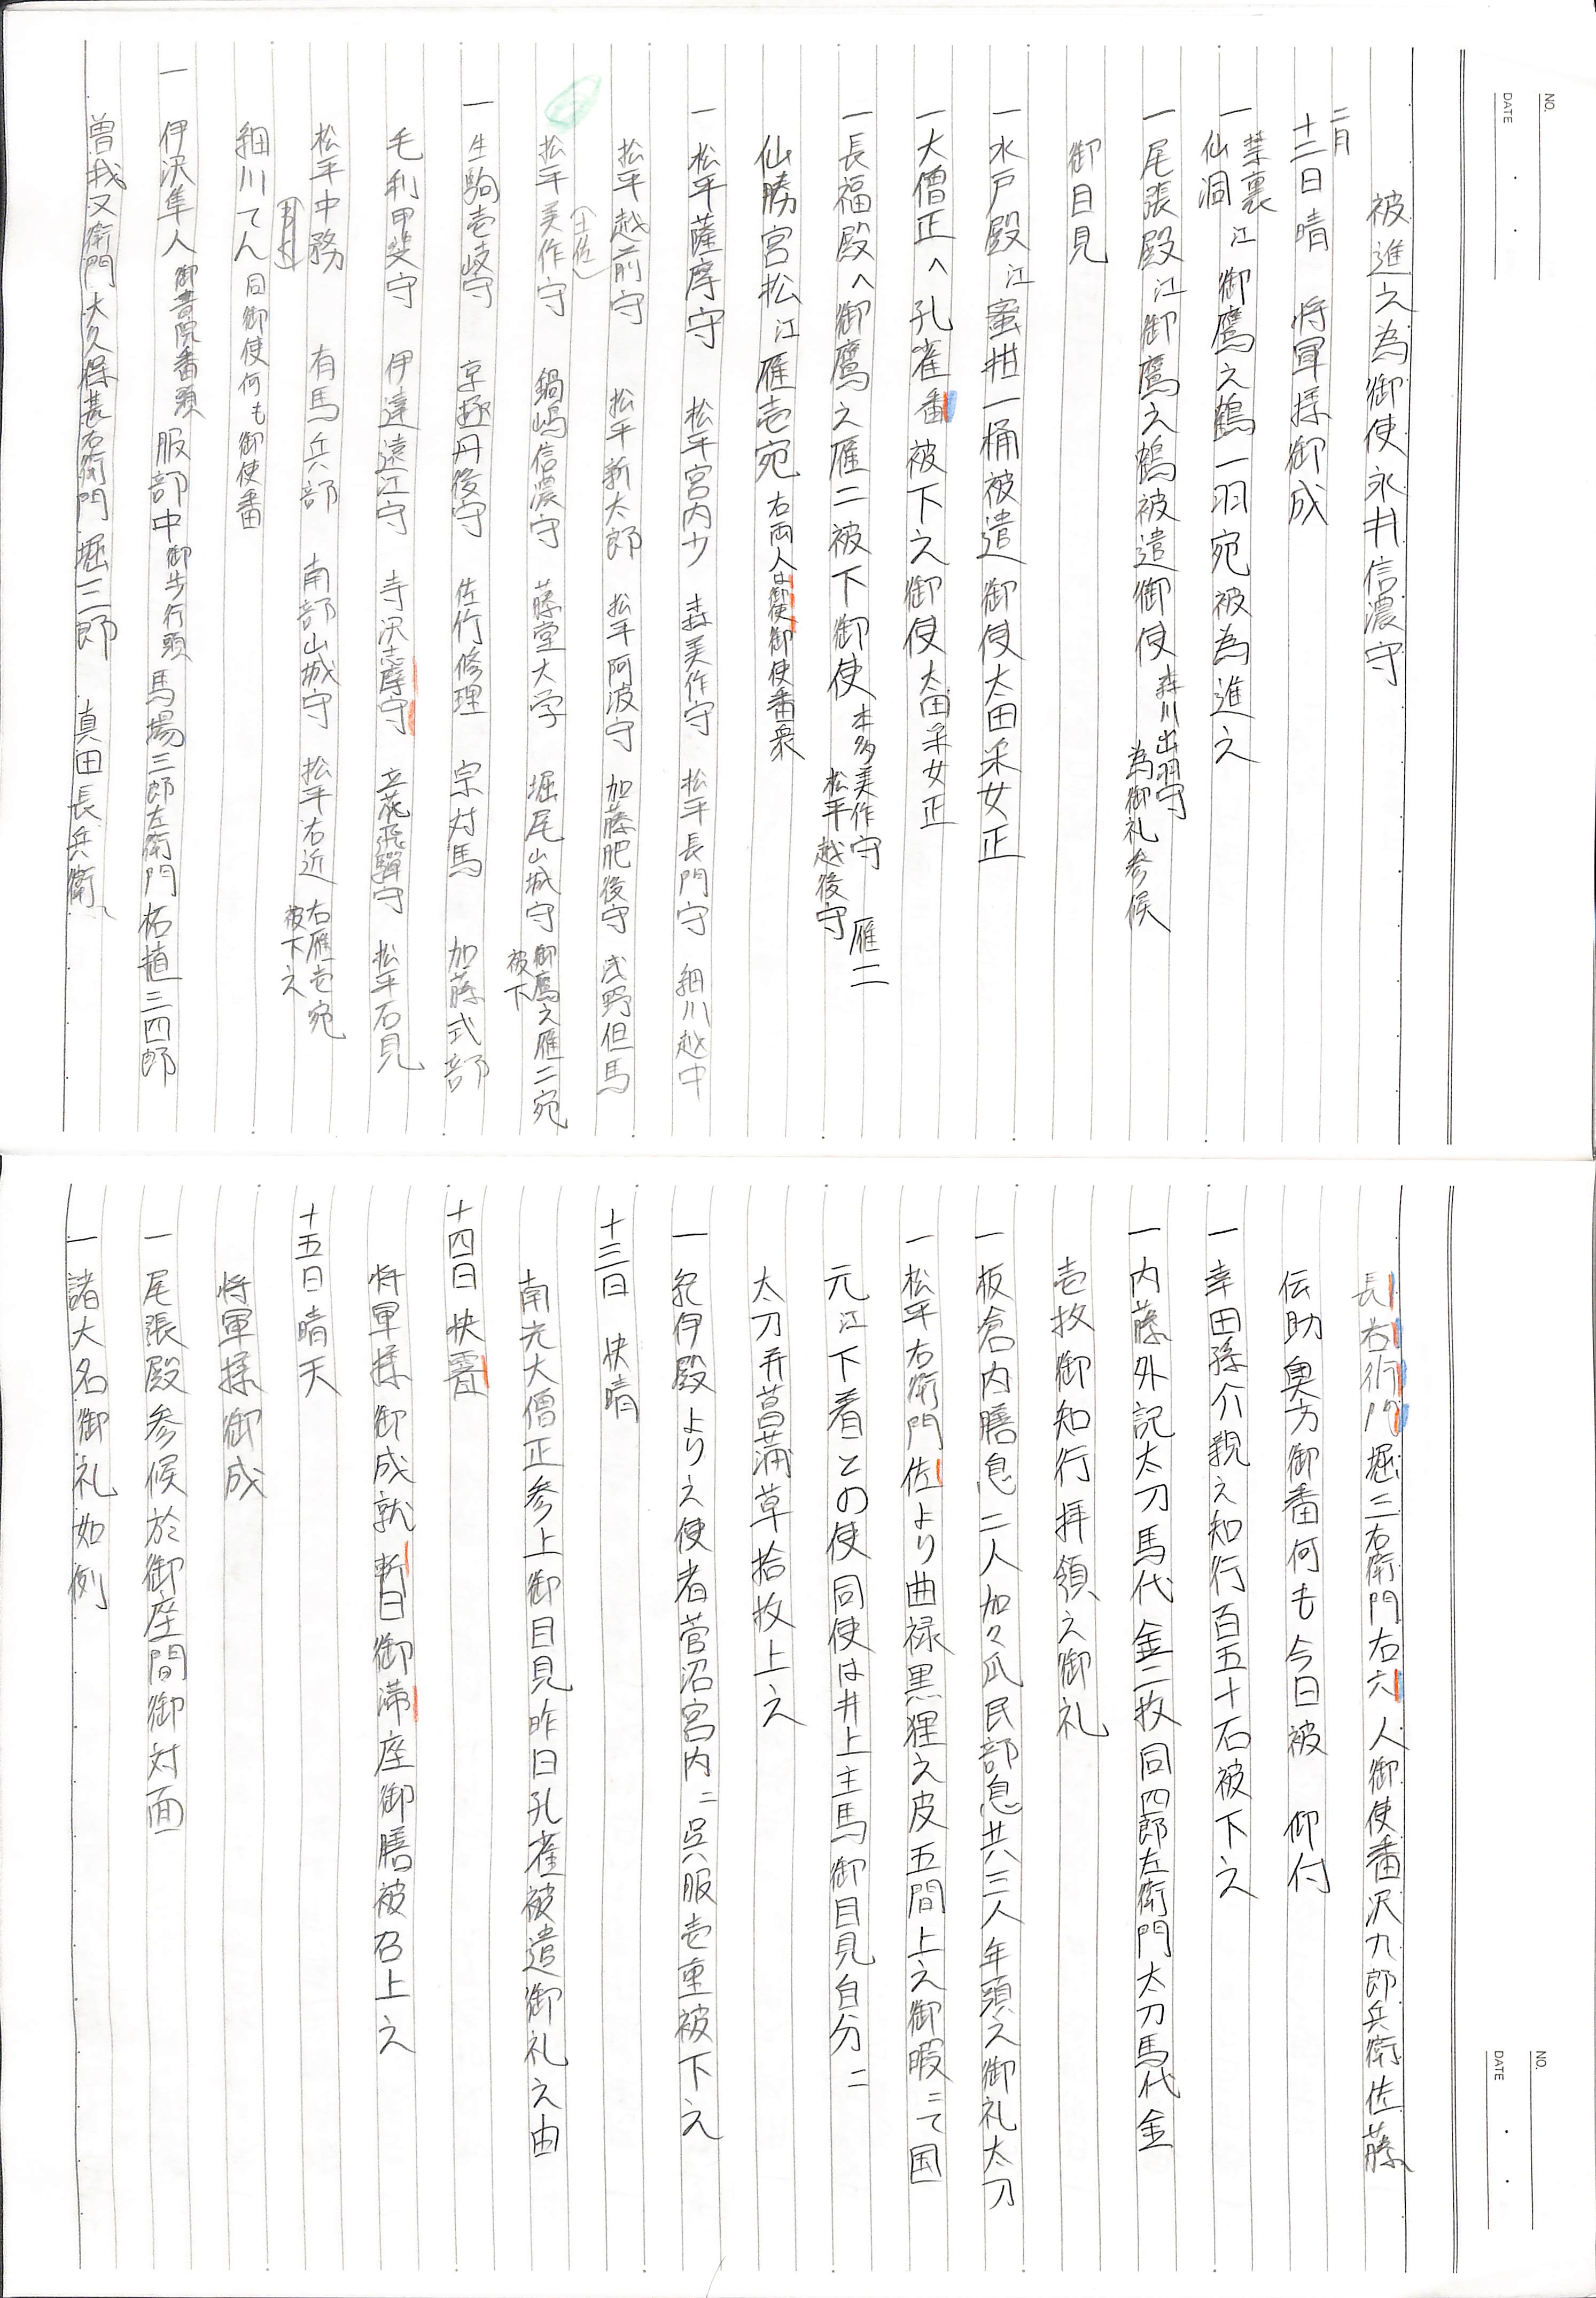 NO.
DATE
被進之為御使永井信濃守
二月
十二日晴 将軍様御成
禁裏
仙洞 江 御鷹之鶴一羽宛被為進之
一尾張殿江御鷹之鶴被遣御使 森川出羽守 為御礼参候
御目見
一水戸殿江蜜柑一桶被遣御使太田采女正
一大僧正へ孔雀番被下之御使太田采女正
一長福殿へ御鷹之雁二被下御使 本多美作守 雁二
松平越後守
仙勝宮松江雁壱宛 右両人 御使番衆
一松平薩摩守 松平宮内少 森美作守 松平長門守 細川越中
松平越前守 松平新太郎 松平阿波守 加藤肥後守 浅野但馬
(土佐)
松平美作守 鍋嶋信濃守 藤堂大学 堀尾山城守 御鷹之雁二宛
被下
一生駒壱岐守 京極丹後守 佐竹修理 宗対馬 加藤式部
毛利甲斐守 伊達遠江守 寺沢志摩守 立花飛騨守 松平石見
松平中務 有馬兵部 南部山城守 松平右近 右雁壱宛
被下之
細川てん 同御使何も御使番
一伊沢隼人 御書院番頭 服部中 御歩行頭 馬場三郎左衛門 柘植三四郎
曽我又衛門 大久保甚右衛門 堀三郎 真田長兵衛
NO.
DATE
長右衛門堀三右衛門右六人御使番沢九郎兵衛佐藤
伝助奥方御番何も今日被 仰付
一幸田孫介親之知行百五十石被下之
一内藤外記太刀馬代金二枚同四郎左衛門太刀馬代金
壱枚御知行拝領之御礼
一板倉内膳息二人加々爪民部息共三人年頭之御礼太刀
一松平右衛門佐より曲禄黒狸之皮五間上之御暇ニて国
元江下着との使同使は井上主馬御目見自分ニ
太刀并菖蒲草拾枚上之
一紀伊殿より之使者菅沼宮内ニ呉服壱重被下之
十三日 快晴
南光大僧正参上御目見昨日孔雀被遣御礼之由
十四日快霽
将軍様御成就暫日御滞座御膳被召上之
十五日晴天
将軍様御成
一尾張殿参候於御座間御対面
一諸大名御礼如例